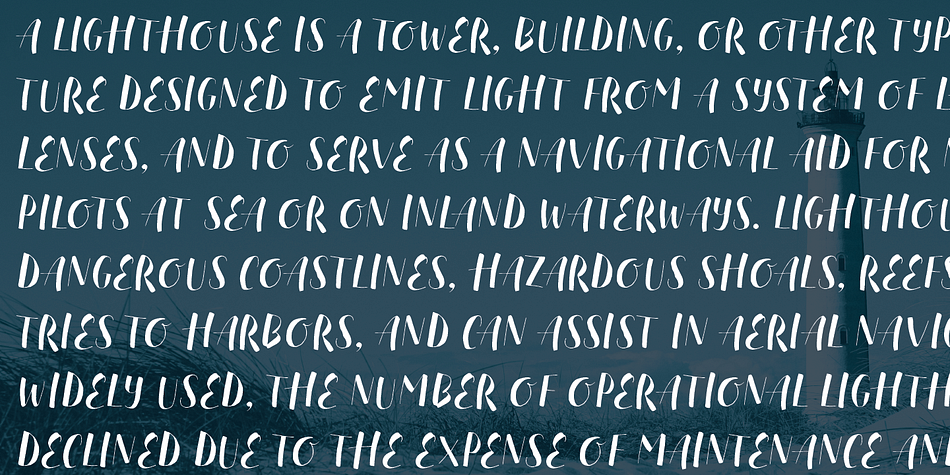 A LIGHTHOUSE IS A TOWER, BUILDING, OR OTHER TYP
TURE DESIGNED TO EMIT LIGHT FROM A SYSTEM OF L
LENSES, AND TO SERVE AS A NAVIGATIONAL AID FOR
PILOTS AT SEA OR ON INLAND WATERWAYS. LIGHTHOU
DANGEROUS COASTLINES, HAZARDOUS SHOALS, REEFS
TRIES TO HARBORS, AND CAN ASSIST IN AERIAL NAVIG
WIDELY USED, THE NUMBER OF OPERATIONAL LIGHTH
DECLINED DUE TO THE EXPENSE OF MAINTENANCE AN